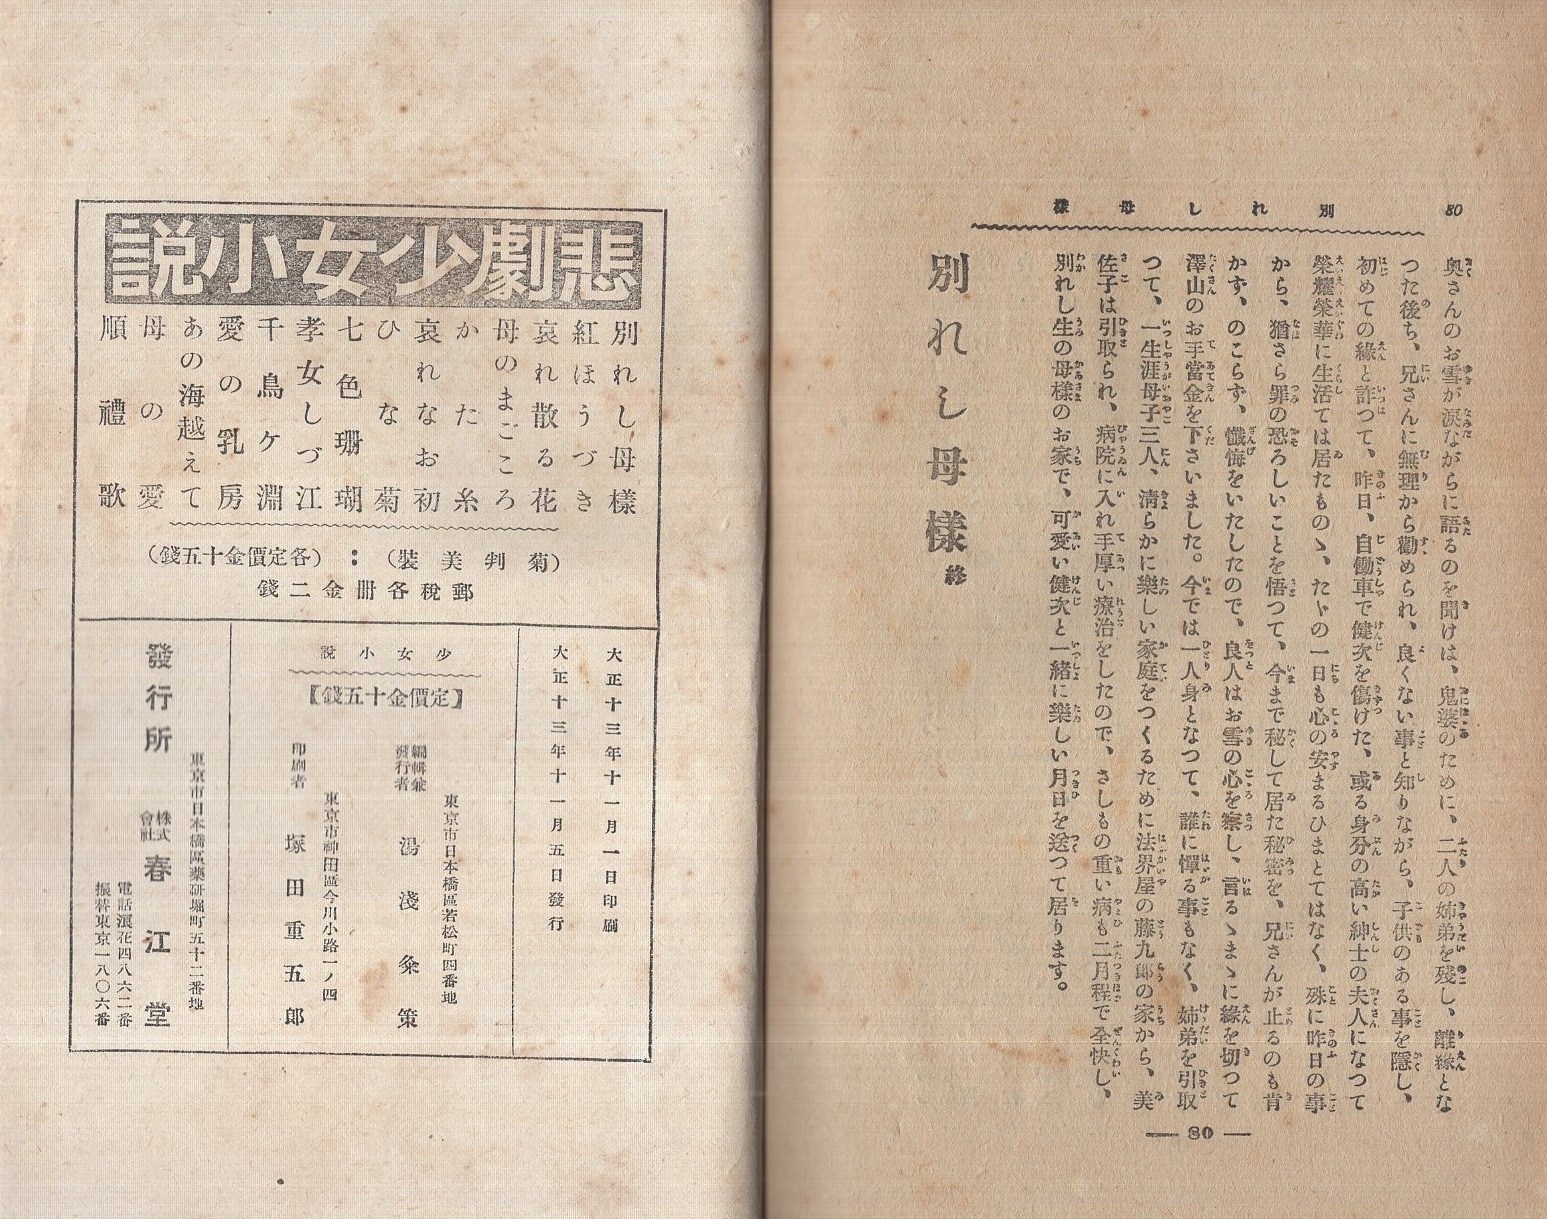 80
別れし母樣
奥さんのお雪が涙ながらに語るのを聞けは、鬼婆のために、二人の姉弟を殘し、離緣とな
つた後ち、兄さんに無理から勸められ、良くない事と知りながら、子供のある事を隱し、
初めての緣と詐つて、昨日、自働車で健次を傷けた、或る身分の高い紳士の夫人になつて
榮耀榮華に生活ては居たものゝ、たゞの一日も心の安まるひまとてはなく、殊に昨日の事
から、猶さら罪の恐ろしいことを悟つて、今まで秘して居た秘密を、兄さんが止るのも肯
かず、のこらず、懺悔をいたしたので、良人はお雪の心を察し、言るゝまゝに緣を切つて
澤山のお手當金を下さいました。今では一人身となつて、誰に憚る事もなく、姉弟を引取
つて、一生涯母子三人、淸らかに樂しい家庭をつくるために法界屋の藤九郎の家から、美
佐子は引取られ、病院に入れ手厚い療治をしたので、さしもの重い病も二月程で全快し、
別れし生の母樣のお家で、可愛い健次と一緖に樂しい月日を送つて居ります。
別れし母樣 終
― 80 ―
悲劇少女小説
別れし母樣
紅ほうづき
哀れ散る花
母のまごころ
かた糸
哀れなお初
ひな菊
七色珊瑚
孝女しづ江
千鳥ケ淵
愛の乳房
あの海越えて
母の愛
順禮歌
(菊判美裝):(各定價金十五錢)
郵稅各冊金二錢
大正十三年十一月一日印刷
大正十三年十一月五日發行
少女小説
【定價金十五錢】
東京市日本橋區若松町四番地
編輯兼發行者 湯淺粂策
東京市神田區今川小路一ノ四
印刷者 塚田重五郎
東京市日本橋區藥硏堀町五十二番地
發行所 株式會社 春江堂
電話浪花四八六二番
振替東京一八〇六番